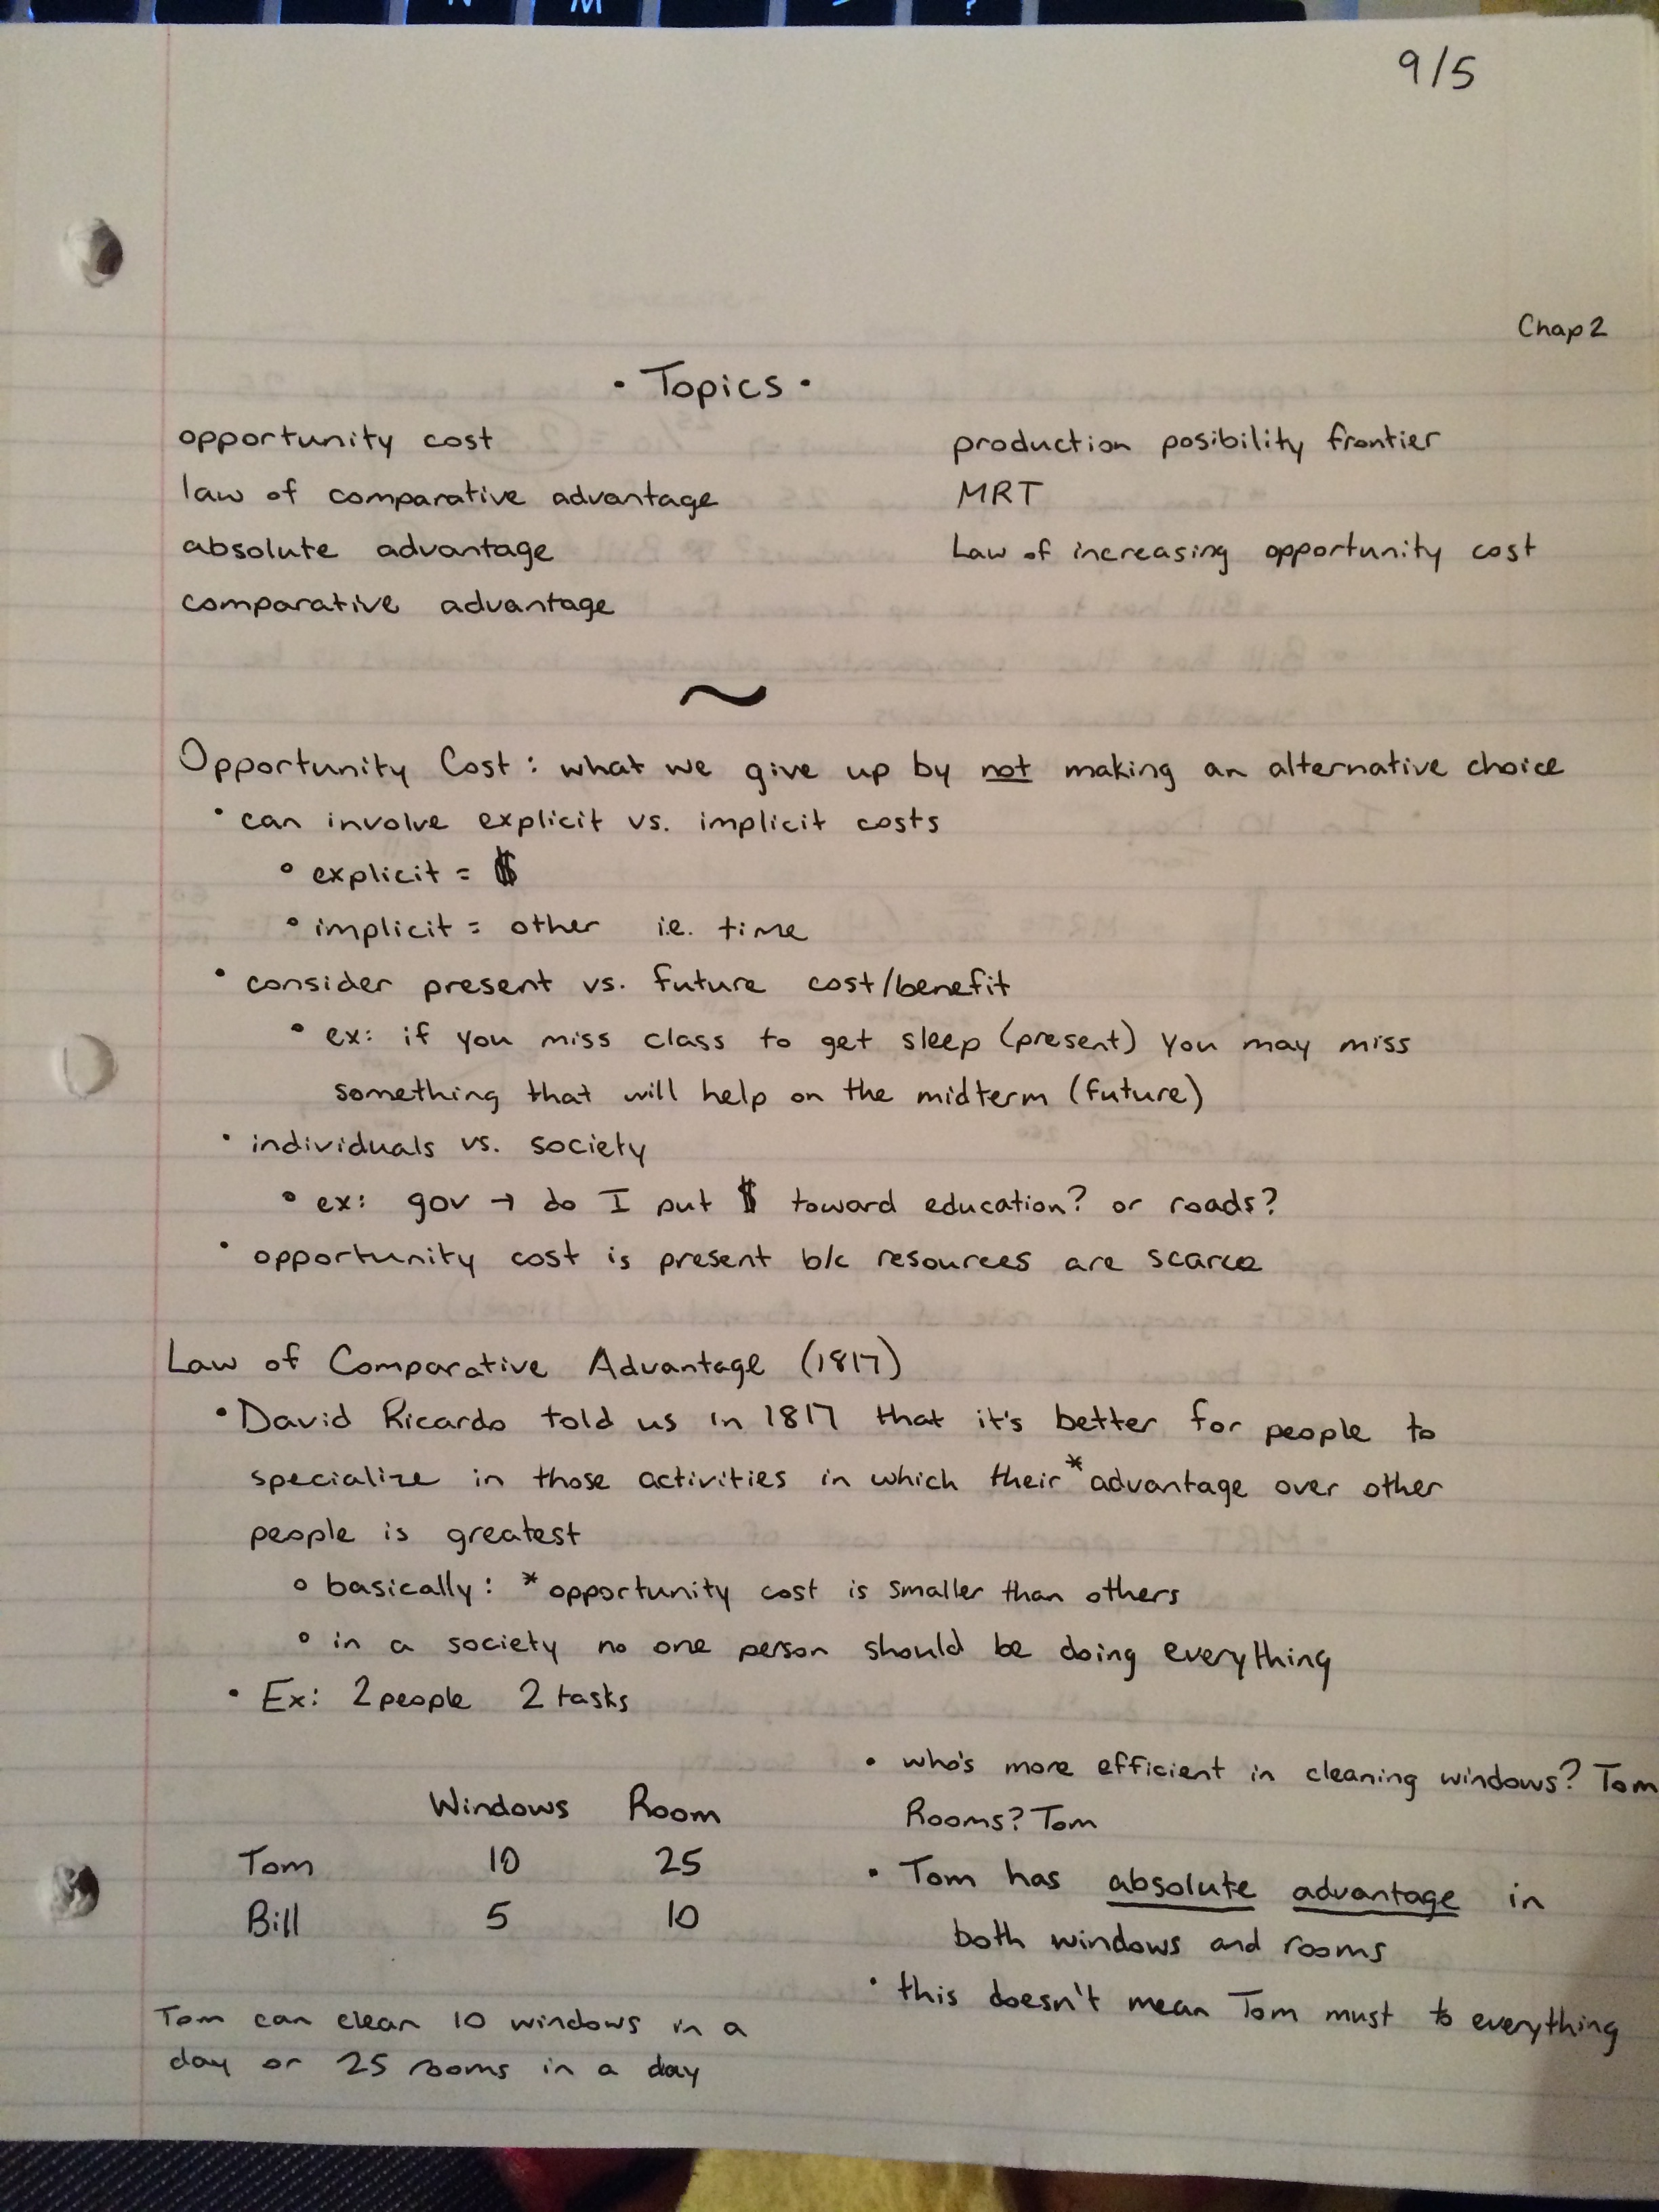 9/5
Chap 2
• Topics •
opportunity cost
law of comparative advantage
absolute advantage
comparative advantage
production posibility frontier
MRT
Law of increasing opportunity cost
~
Opportunity Cost: what we give up by not making an alternative choice
• can involve explicit vs. implicit costs
• explicit = $
• implicit = other i.e. time
• consider present vs. future cost/benefit
• ex: if you miss class to get sleep (present) you may miss
something that will help on the midterm (future)
• individuals vs. society
• ex: gov → do I put $ toward education? or roads?
• opportunity cost is present b/c resources are scarce
Law of Comparative Advantage (1817)
• David Ricardo told us in 1817 that it's better for people to
specialize in those activities in which their *advantage over other
people is greatest
○ basically: *opportunity cost is smaller than others
○ in a society no one person should be doing everything
• Ex: 2 people 2 tasks
Windows Room
Tom 10 25
Bill 5 10
Tom can clean 10 windows in a
day or 25 rooms in a day
• who's more efficient in cleaning windows? Tom
Rooms? Tom
• Tom has absolute advantage in
both windows and rooms
• this doesn't mean Tom must to everything